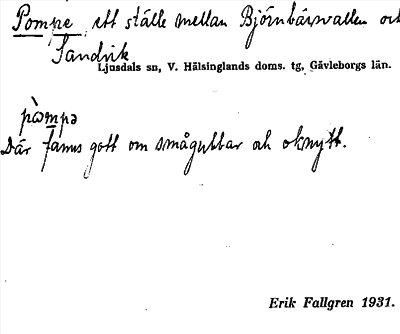 Pompe, ett ställe mellan Björnbärsvallen och
Sandvik
Ljusdals sn, V. Hälsinglands doms. tg, Gävleborgs län.
pòmpə
Där fanns gott om smågubbar och oknytt.
Erik Fallgren 1931.